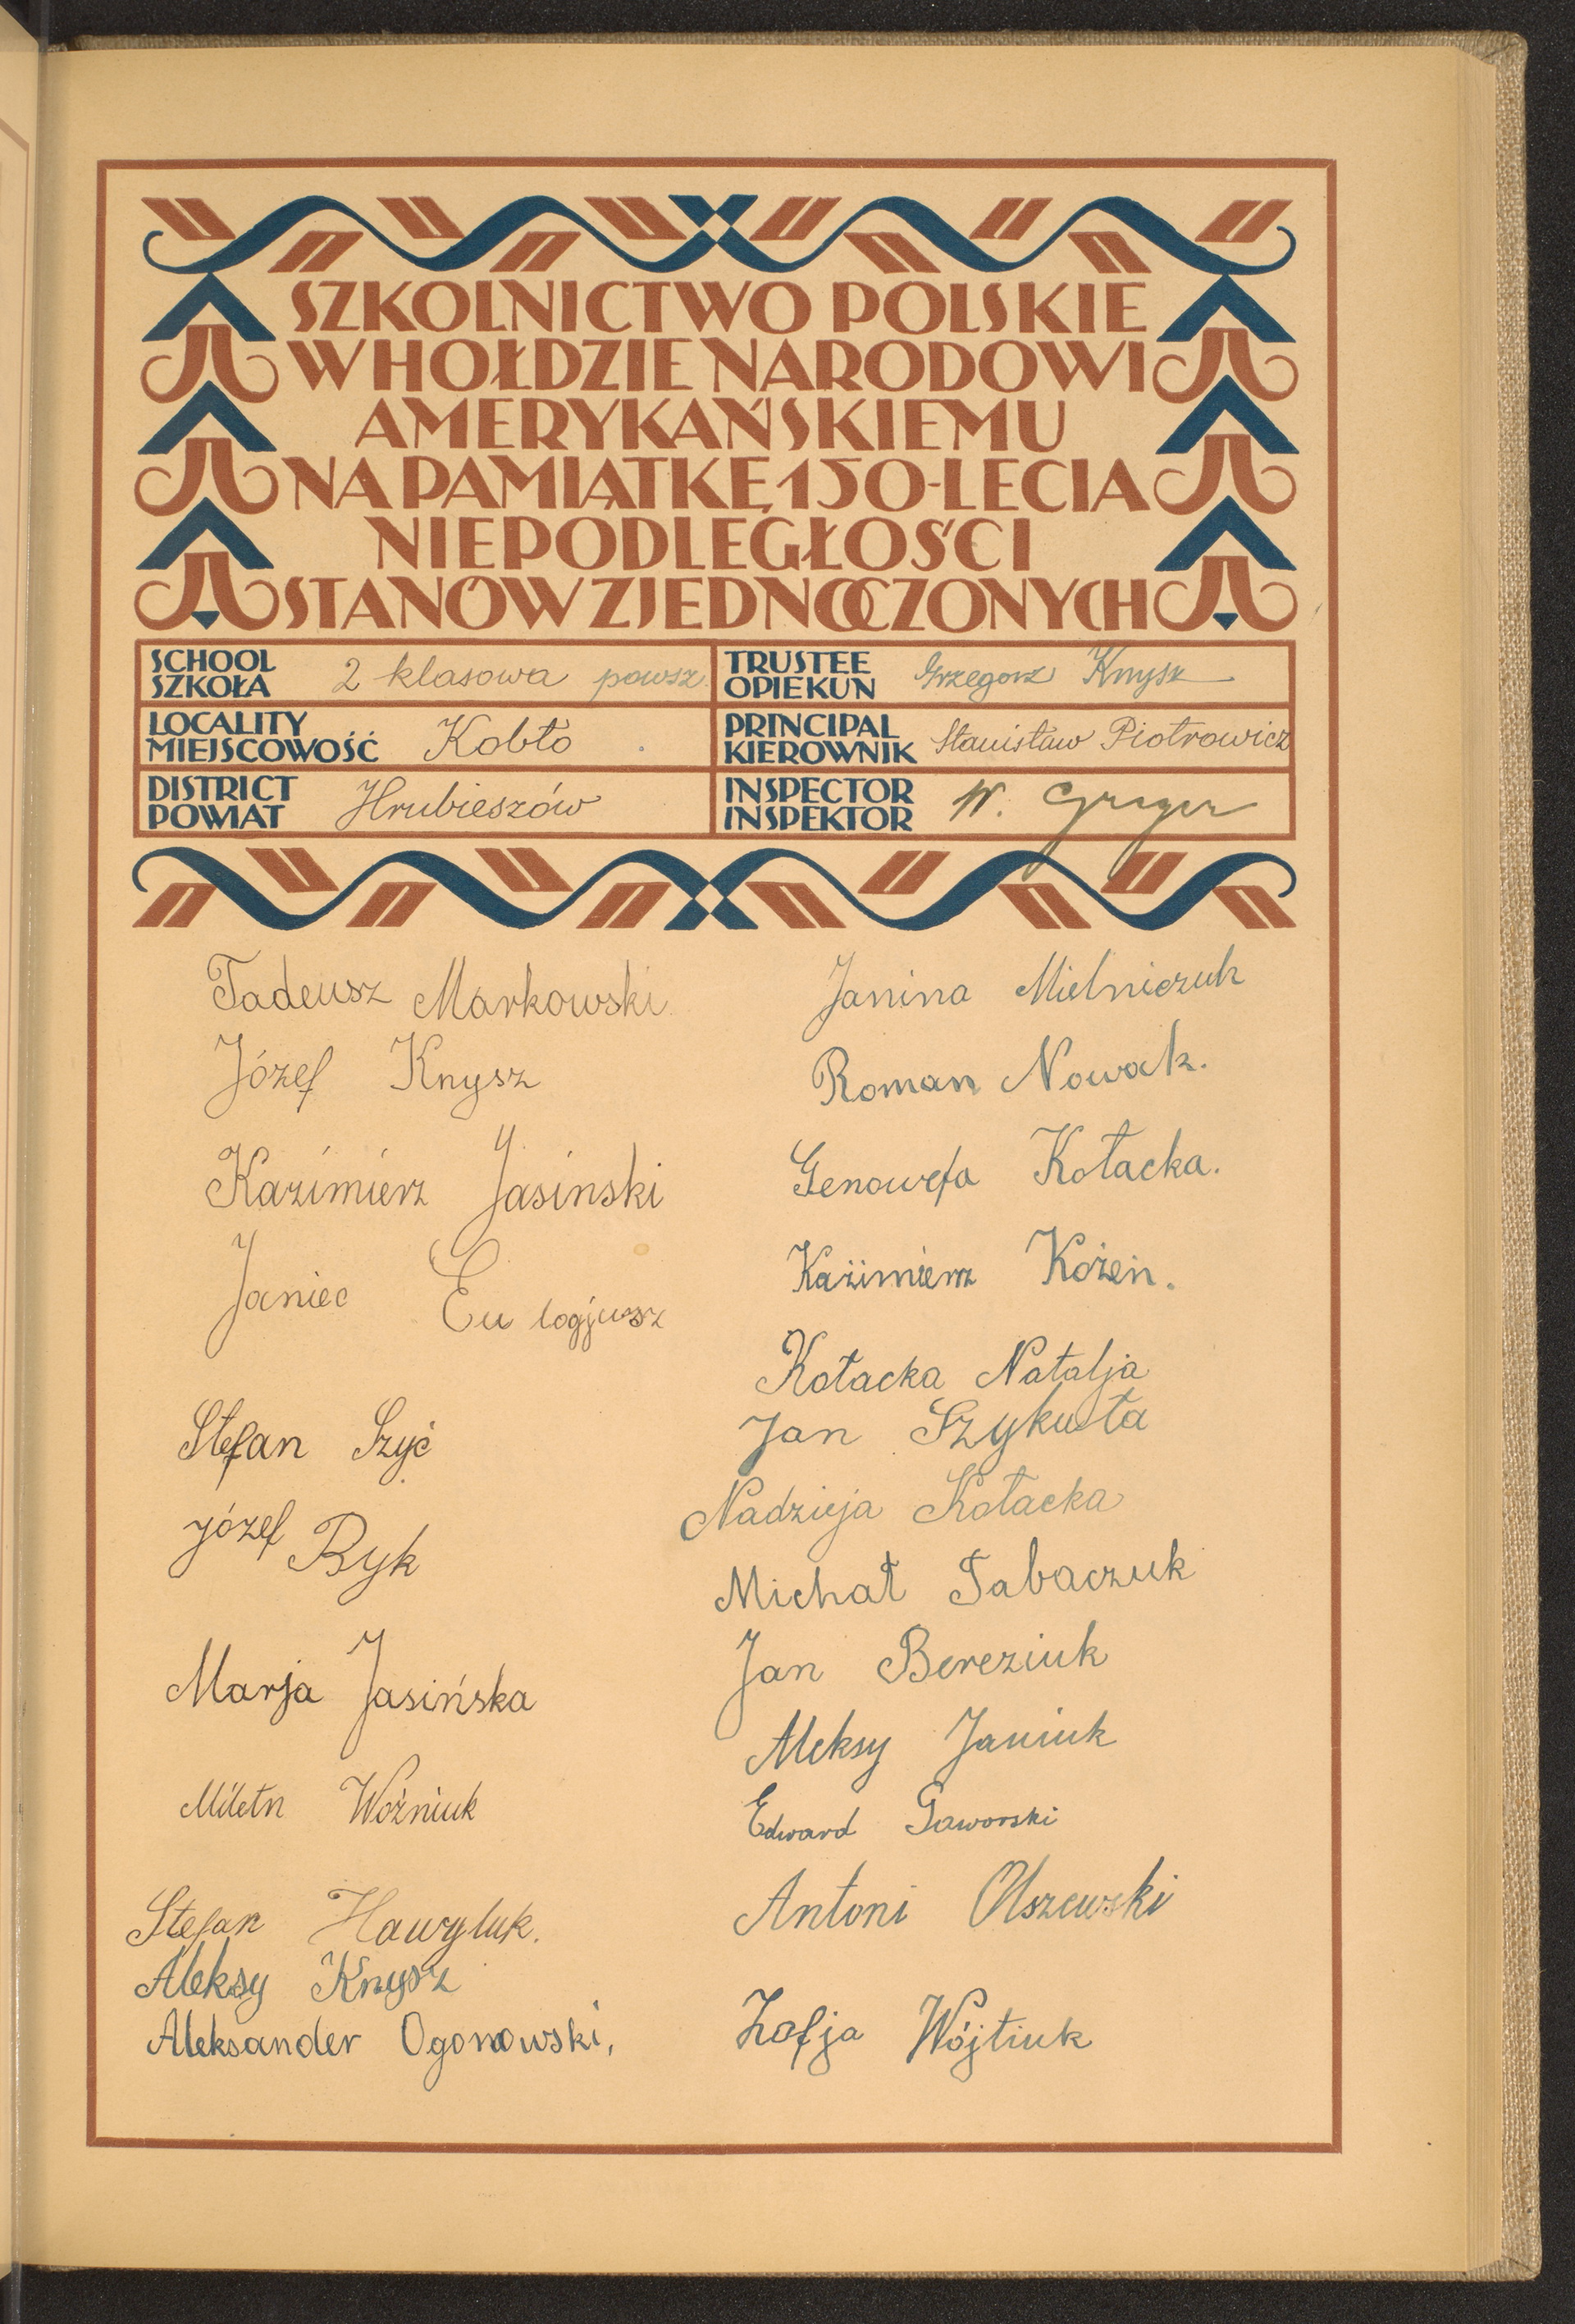 SZKOLNICTWO POLSKIE
W HOŁDZIE NARODOWI
AMERYKAŃSKIEMU
NA PAMIĄTKĘ 150-LECIA
NIEPODLEGŁOŚCI
STANÓW ZJEDNOCZONYCH
SCHOOL
SZKOŁA 2 klasowa powsz.
LOCALITY
MIEJSCOWOŚĆ Kobło
DISTRICT
POWIAT Hrubieszów
TRUSTEE
OPIEKUN Grzegorz Knysz
PRINCIPAL
KIEROWNIK Stanisław Piotrowicz
INSPECTOR
INSPEKTOR W.
Tadeusz Markowski
Józef Knysz
Kazimierz Jasinski
Janiec Eu logjusz
Stefan Szyć
Józef Ryk
Marja Jasińska
Woźniuk
Stefan Hawryluk.
Aleksy Knysz
Aleksander Ogonowski,
Janina Mielniczuk
Roman Nowak.
Genowefa Kołacka.
Kazimierz Kożeń.
Kołacka Natalja
Jan Szykuła
Nadzieja Kołacka
Michał Tabaczuk
Jan Bereziuk
Aleksy Janiuk
Edward Gaworski
Antoni Olszewski
Zofja Wójtiuk